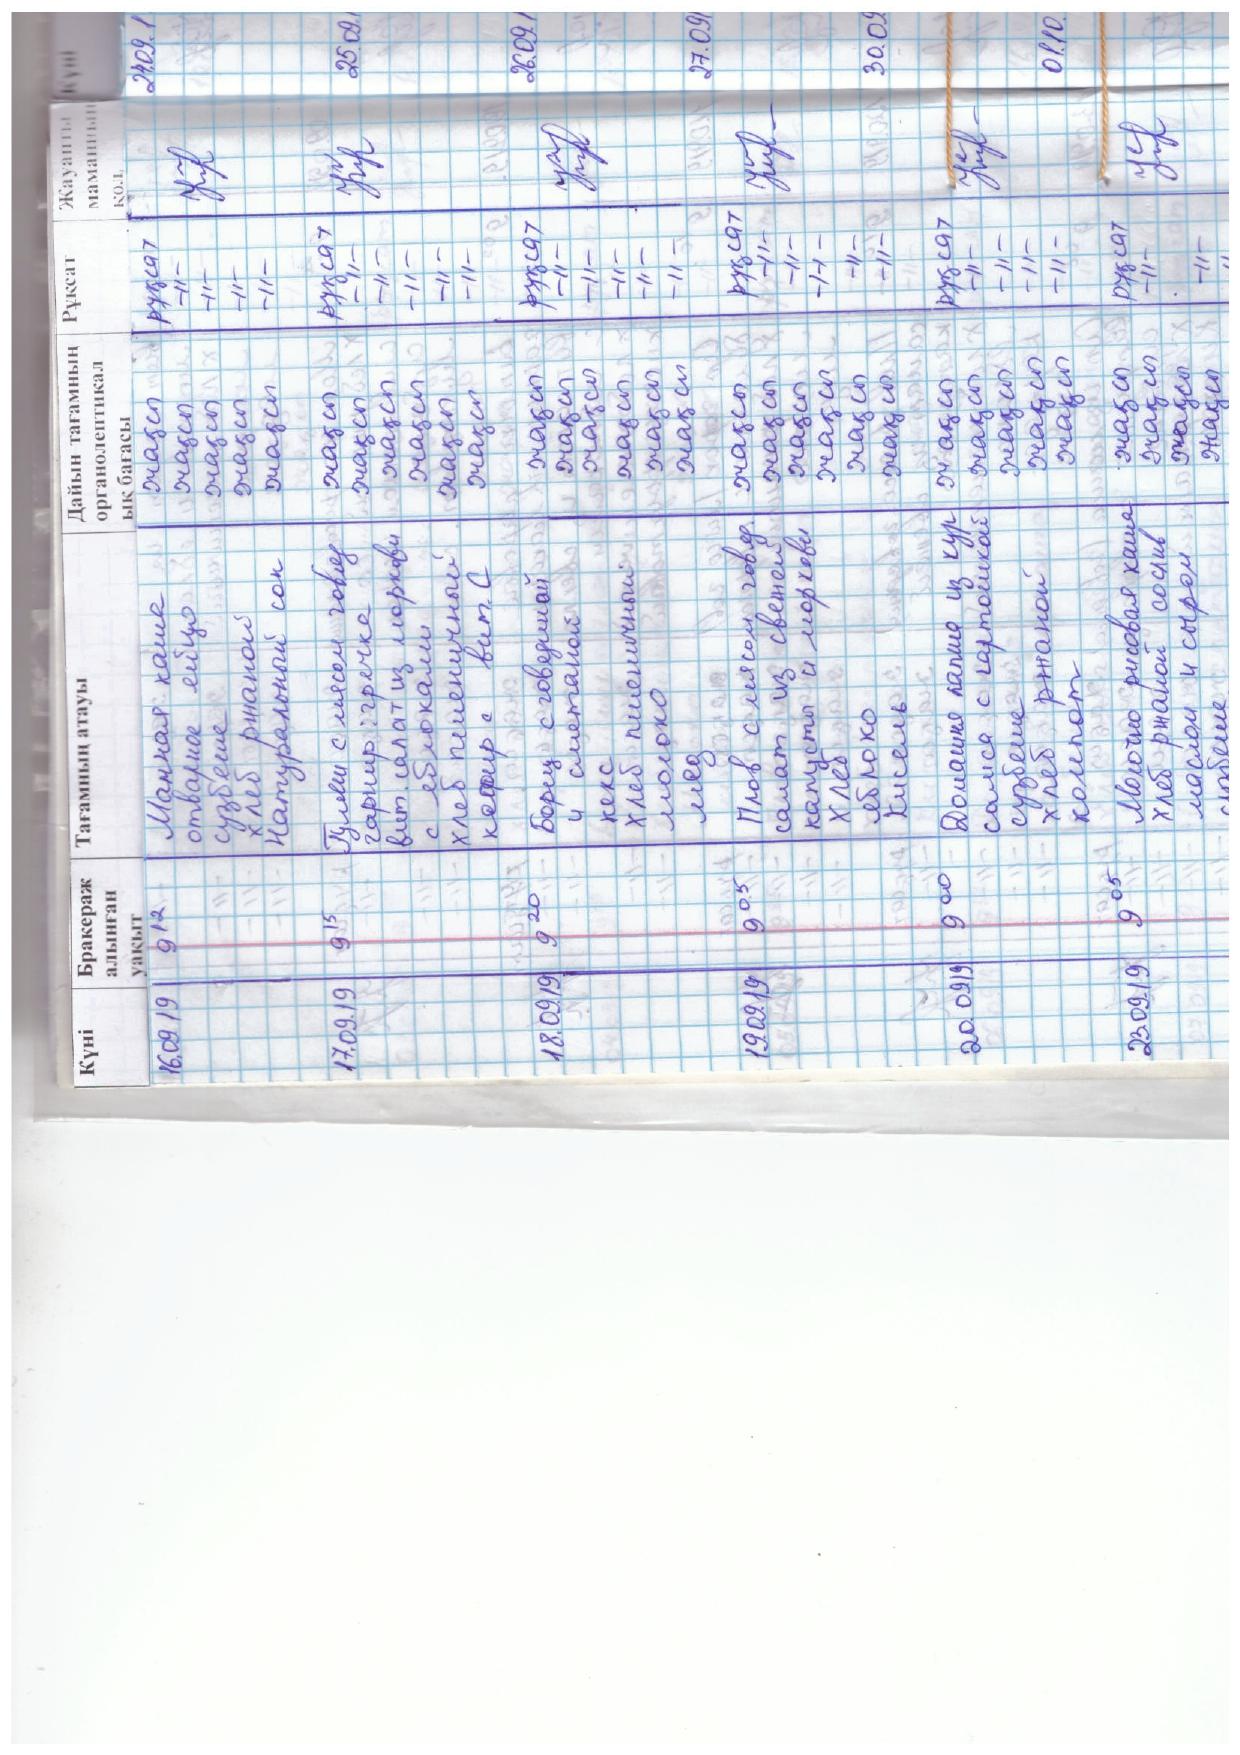 Күні Бракераж алынған уақыт Тағамның атауы Дайын тағамның органолептикалық бағасы Рұқсат Жауапты маманның қол. Күні
16.09.19 9 12 Манная каша жақсы рұқсат 24.09.1
отварное ейцо жақсы -//-
сүзбеше жақсы -//-
хлеб ржаной жақсы -//-
Натуральный сок жақсы -//-
17.09.19 9 15 Гуляш с мясом говяд жақсы рұқсат 25.09
гарнир: гречка жақсы -//-
вит. салат из моркови жақсы -//-
с яблоками жақсы -//-
хлеб пшеничный жақсы -//-
кефир с вит. С жақсы -//-
18.09.19 9 20 Борщ с говядиной жақсы рұқсат 26.09.1
и сметаной жақсы -//-
жақсы -//-
кекс жақсы -//-
Хлеб пшеничный жақсы -//-
молоко жақсы -//-
мед
19.09.19 9 05 Плов с мясом говяд. жақсы рұқсат 27.09
салат из свежей жақсы -//-
капусты и моркови жақсы -//-
Хлеб жақсы -//-
яблоко жақсы -//-
Кисель жақсы -//-
20.09.19 9 00 Домашне лапша из кур жақсы рұқсат 30.09
самса с картошкой жақсы -//-
сүзбеше жақсы -//-
хлеб ржаной жақсы -//-
компот жақсы -//-
01.10.
23.09.19 9 05 Молочно рисовая каша жақсы рұқсат
Хлеб ржаной со слив жақсы -//-
маслом и сыром жақсы -//-
сүзбеше жақсы